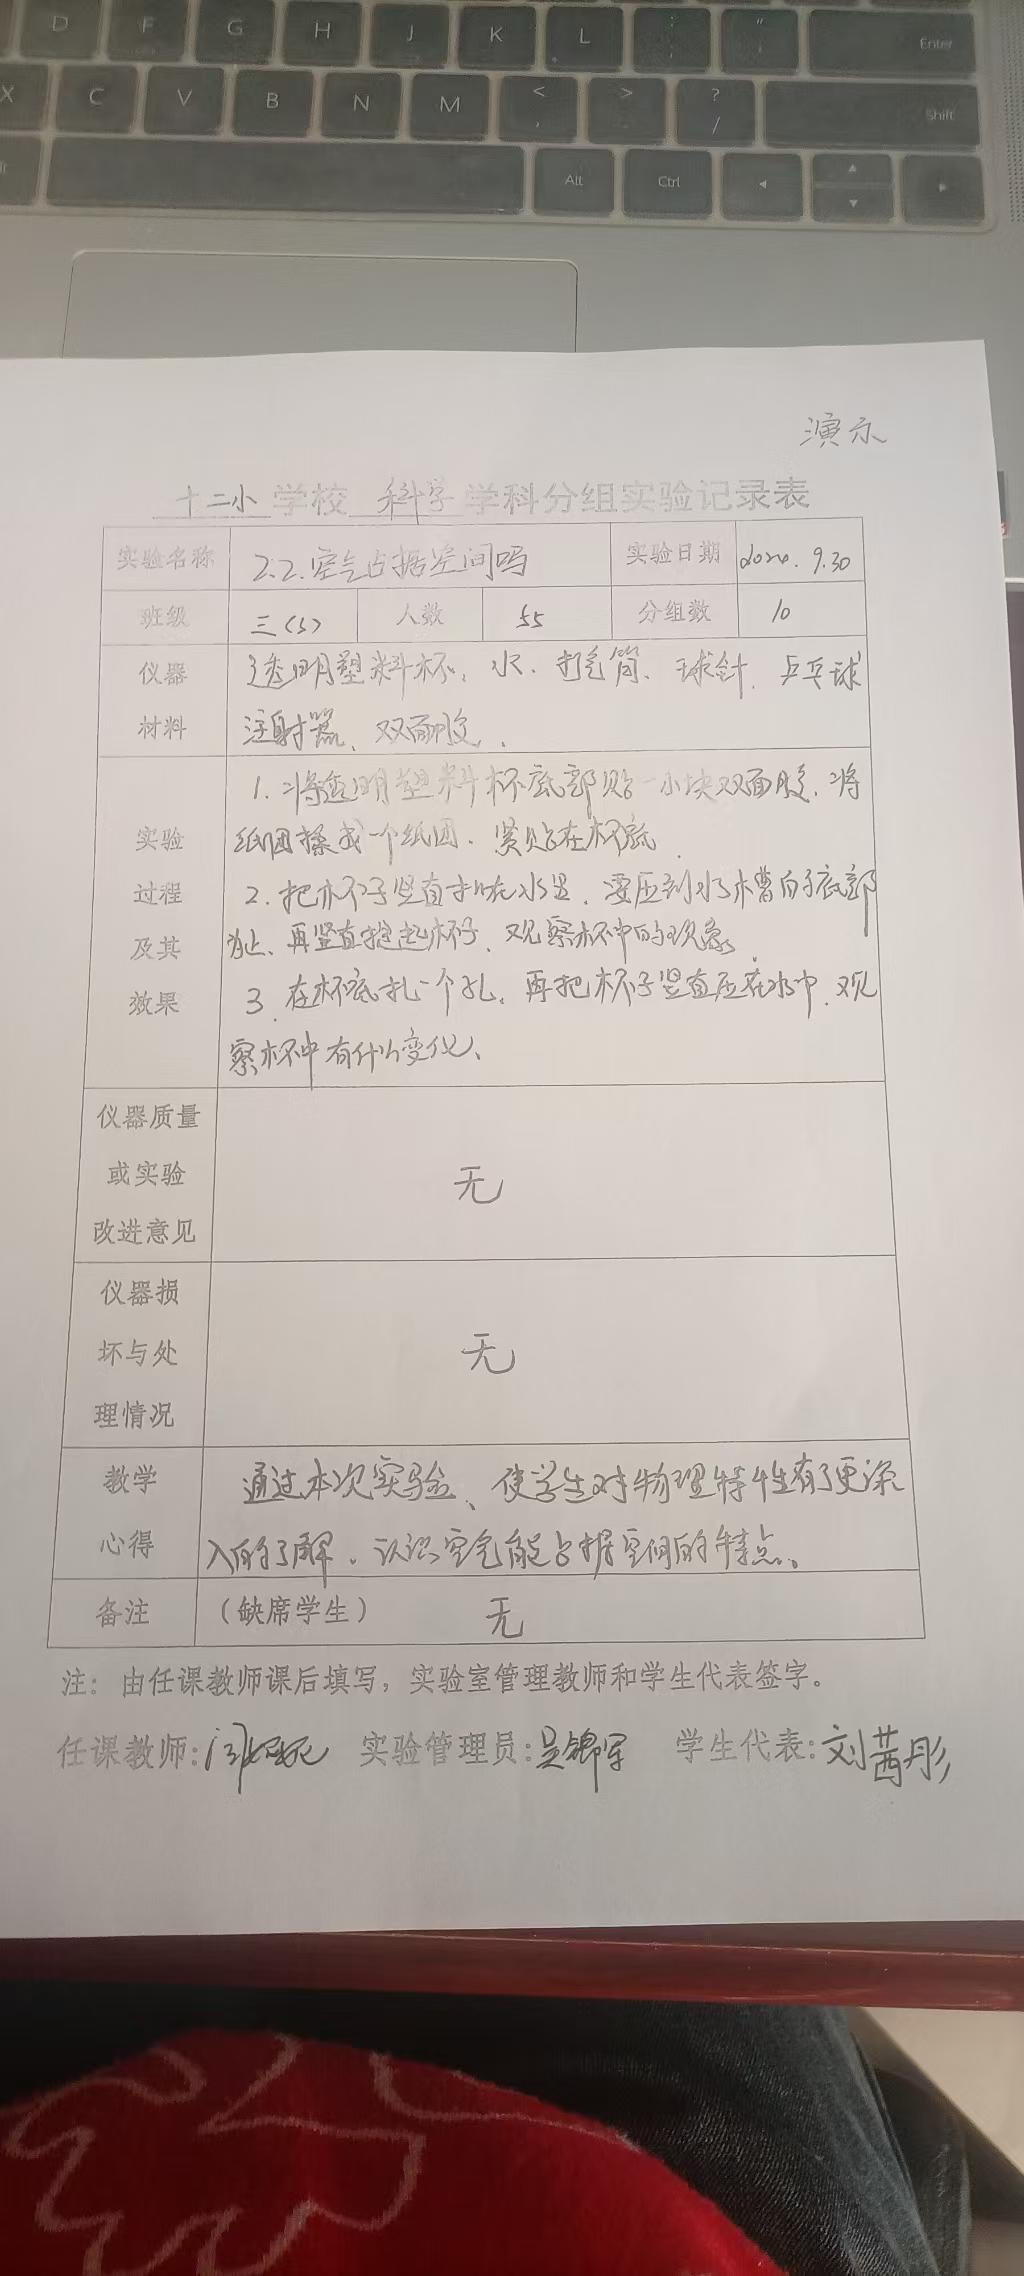 D F G H J K L : ; " ' Enter
X C V B N M < , > . ? / Shift
Alt Ctrl
演示
十二小 学校 科学 学科分组实验记录表
实验名称 2.2.空气占据空间吗 实验日期 2024.9.30
班级 三(5) 人数 55 分组数 10
仪器 透明塑料杯、水、打气筒、球针、乒乓球
材料 注射器、双面胶、
1.将透明塑料杯底部贴一小块双面胶、将
实验 纸团揉成一个纸团、紧贴在杯底
过程 2.把杯子竖直扣在水里、要压到水槽的底部
及其 为止、再竖直提起杯子、观察杯中的现象。
效果 3.在杯底扎一个孔、再把杯子竖直压在水中、观
察杯中有什么变化、
仪器质量
或实验 无
改进意见
仪器损
坏与处 无
理情况
教学 通过本次实验、使学生对物理特性有了更深
心得 入的了解、认识空气能占据空间的特点、
备注 (缺席学生) 无
注：由任课教师课后填写，实验室管理教师和学生代表签字。
任课教师: 实验管理员:吴锦军 学生代表:刘茜彤